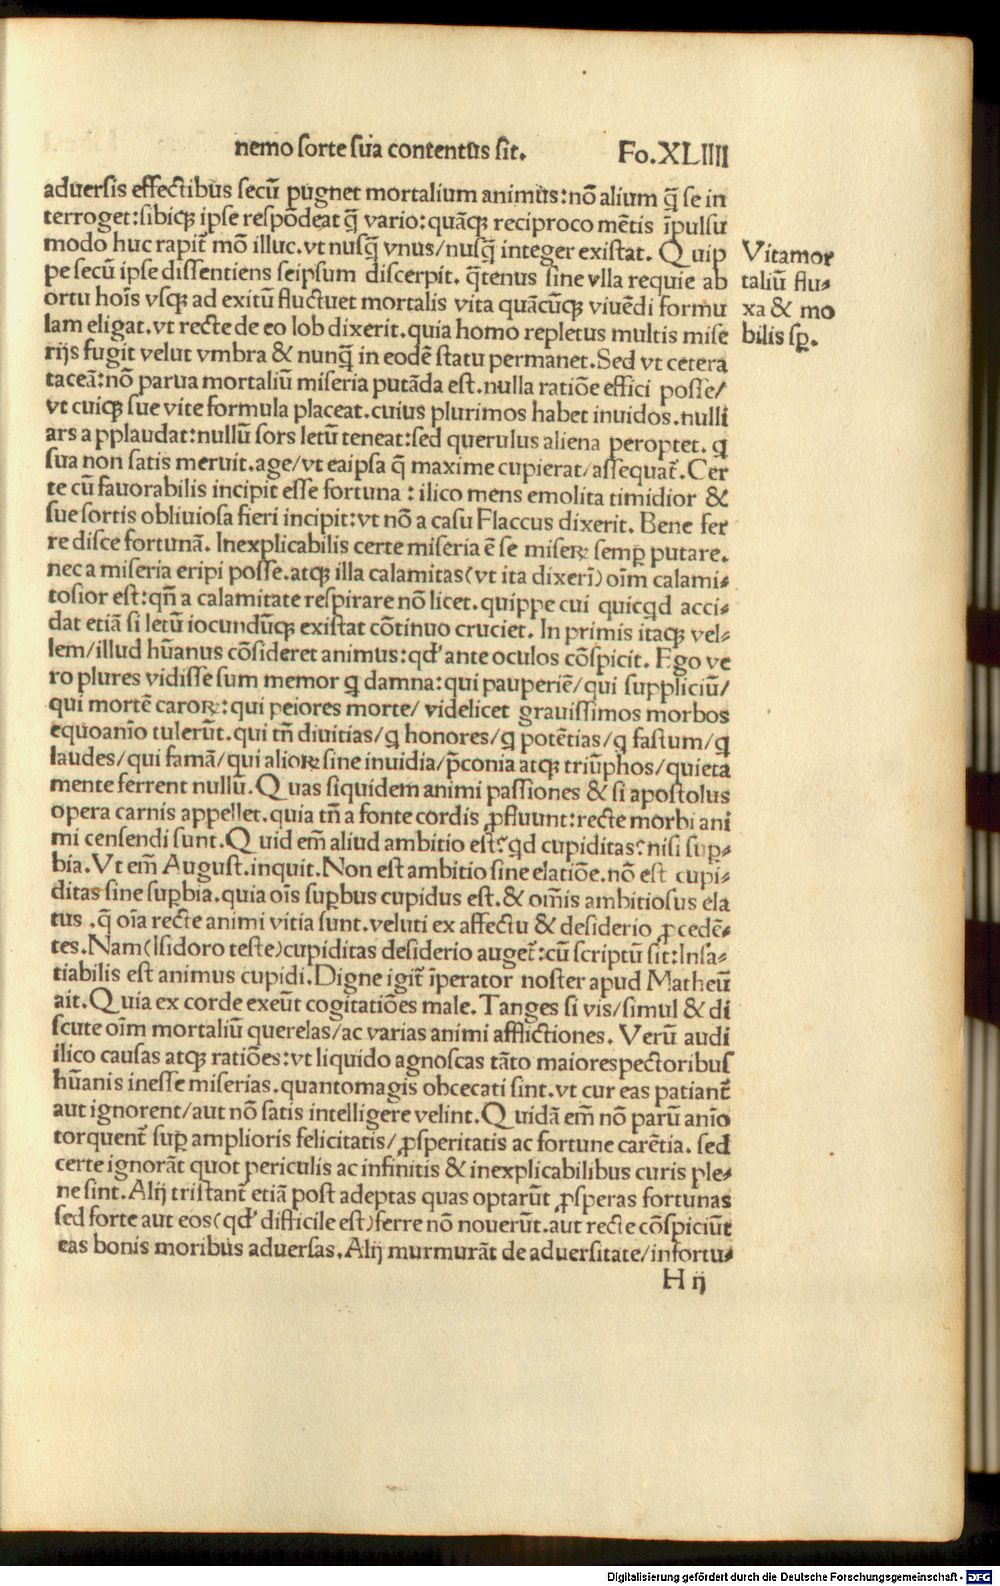 nemo sorte sua contentus sit. Fo.XLIIII
aduersis effectibus secū pugnet mortalium animus:nō alium q̄ se in
terroget:sibiqꝫ ipse respōdeat q̄ vario:quāqꝫ reciproco mētis īpulsu
modo huc rapit᷑ mō illuc.vt nusq̄ vnus/nusq̄ integer existat. Quip
pe secū ipse dissentiens seipsum discerpit. q̄tenus sine vlla requie ab
ortu hoīs vsqꝫ ad exitū fluctuet mortalis vita quācūqꝫ viuēdi formu
lam eligat.vt recte de eo Iob dixerit.quia homo repletus multis mise
rijs fugit velut vmbra & nunq̄ in eodē statu permanet.Sed vt cetera
taceā:nō parua mortaliū miseria putāda est.nulla ratiōe effici posse/
vt cuiqꝫ sue vite formula placeat.cuius plurimos habet inuidos.nulli
ars applaudat:nullū sors letū teneat:sed querulus aliena peroptet. ꝗ
sua non satis meruit.age/vt eaipsa q̄ maxime cupierat/assequat᷑.Cer
te cū fauorabilis incipit esse fortuna : ilico mens emolita timidior &
sue sortis obliuiosa fieri incipit:vt nō a casu Flaccus dixerit. Bene fer
re disce fortunā. Inexplicabilis certe miseria ē se miseꝝ semꝑ putare.
nec a miseria eripi posse.atqꝫ illa calamitas(vt ita dixerī)oīm calami⸗
tosior est:qn̄ a calamitate respirare nō licet.quippe cui quicꝗd acci⸗
dat etiā si letū iocundūqꝫ existat cōtinuo cruciet. In primis itaqꝫ vel⸗
lem/illud hūanus cōsideret animus:qd' ante oculos cōspicit. Ego ve
ro plures vidisse sum memor ꝗ damna:qui pauperiē/qui suppliciū/
qui mortē caroꝝ:qui peiores morte/ videlicet grauissimos morbos
equoanīo tulerūt.qui tn̄ diuitias/ꝗ honores/ꝗ potētias/ꝗ fastum/ꝗ
laudes/qui famā/qui alioꝝ sine inuidia/p̄conia atqꝫ triūphos/quieta
mente ferrent nullū.Quas siquidem animi passiones & si apostolus
opera carnis appellet.quia tn̄ a fonte cordis ꝓfluunt:recte morbi ani
mi censendi sunt.Quid em̄ aliud ambitio est?ꝗd cupiditas?nisi suꝑ⸗
bia.Vt em̄ August.inquit.Non est ambitio sine elatiōe.nō est cupi⸗
ditas sine suꝑbia.quia oīs suꝑbus cupidus est.& om̄is ambitiosus ela
tus .q̄ oīa recte animi vitia sunt.veluti ex affectu & desiderio ꝓcedē⸗
tes.Nam(Isidoro teste)cupiditas desiderio auget᷑:cū scriptū sit:Insa⸗
tiabilis est animus cupidi.Digne igit᷑ īperator noster apud Matheū
ait.Quia ex corde exeūt cogitatiōes male.Tanges si vis/simul & di
scute oīm mortaliū querelas/ac varias animi afflictiones. Verū audi
ilico causas atqꝫ ratiōes:vt liquido agnoscas tāto maiorespectoribus
hūanis inesse miserias.quantomagis obcecati sint.vt cur eas patiant᷑
aut ignorent/aut nō satis intelligere velint.Quidā em̄ nō parū anīo
torquent᷑ suꝑ amplioris felicitatis/ꝓsperitatis ac fortune carētia. sed
certe ignorāt quot periculis ac infinitis & inexplicabilibus curis ple⸗
ne sint.Alij tristant᷑ etiā post adeptas quas optarūt ꝓsperas fortunas
sed forte aut eos(qd' difficile est)ferre nō nouerūt.aut recte cōspiciūt
eas bonis moribus aduersas.Alij murmurāt de aduersitate/infortu⸗
H ij
Vitamor
taliū flu⸗
xa & mo
bilis sꝑ.
Digitalisierung gefördert durch die Deutsche Forschungsgemeinschaft - DFG